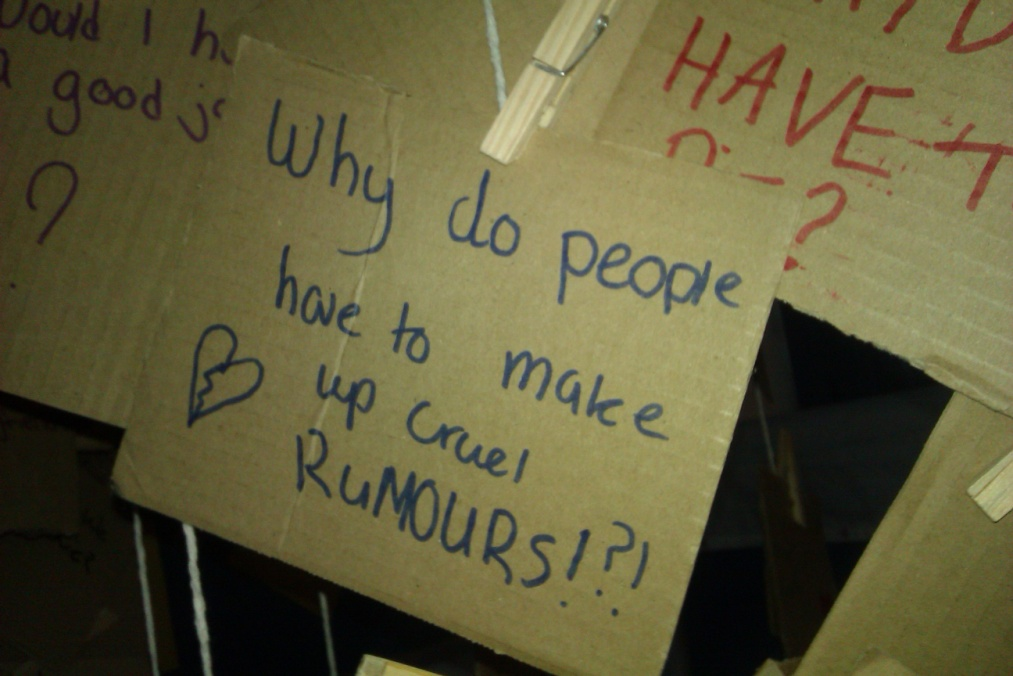 Would I
a good
?
Why do people
have to make
up cruel
RUMOURS!?!
HAVE
?